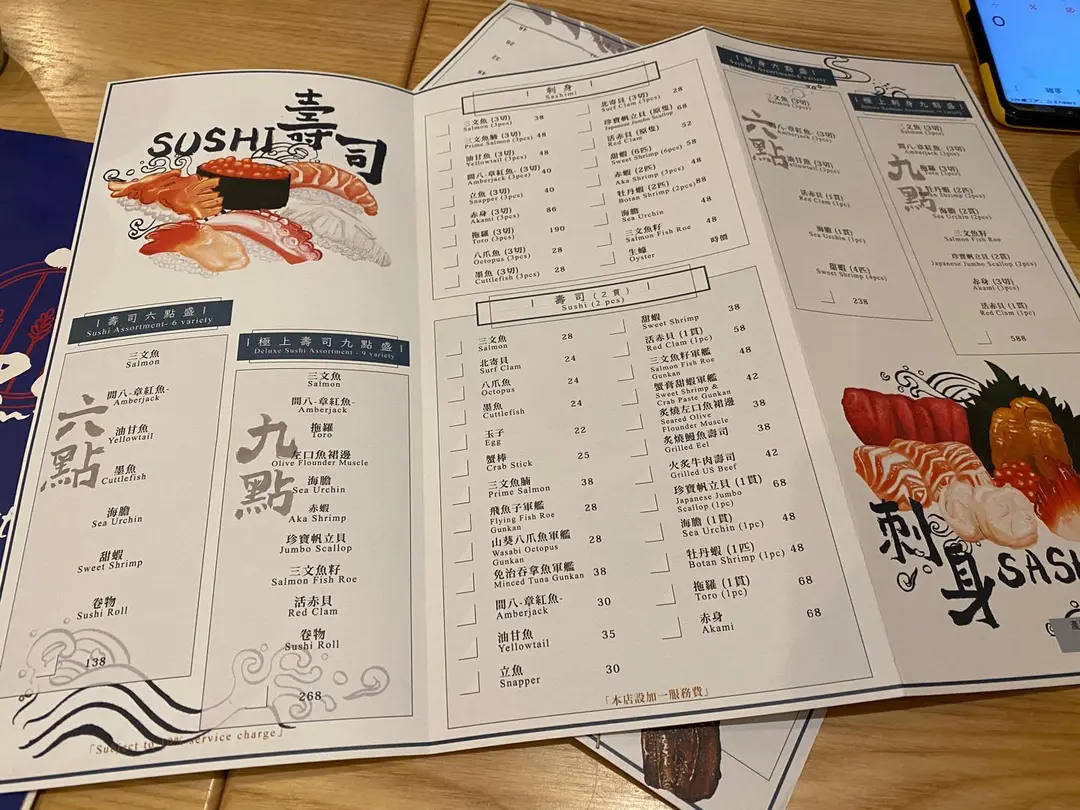 壽司
SUSHI
| 壽司六點盛 |
Sushi Assortment- 6 variety
六點
三文魚
Salmon
間八-章紅魚-
Amberjack
油甘魚
Yellowtail
墨魚
Cuttlefish
海膽
Sea Urchin
甜蝦
Sweet Shrimp
卷物
Sushi Roll
138
| 極上壽司九點盛 |
Deluxe Sushi Assortment - 9 variety
九點
三文魚
Salmon
間八-章紅魚-
Amberjack
拖羅
Toro
左口魚裙邊
Olive Flounder Muscle
海膽
Sea Urchin
赤蝦
Aka Shrimp
珍寶帆立貝
Jumbo Scallop
三文魚籽
Salmon Fish Roe
活赤貝
Red Clam
卷物
Sushi Roll
268
「Subject to 10% service charge」
| 刺身 |
Sashimi
三文魚 (3切) 38
Salmon (3pcs)
三文魚腩 (3切) 48
Prime Salmon (3pcs)
油甘魚 (3切) 48
Yellowtail (3pcs)
間八-章紅魚- (3切) 40
Amberjack (3pcs)
立魚 (3切) 40
Snapper (3pcs)
赤身 (3切) 86
Akami (3pcs)
拖羅 (3切) 190
Toro (3pcs)
八爪魚 (3切) 28
Octopus (3pcs)
墨魚 (3切) 28
Cuttlefish (3pcs)
北寄貝 (3切) 28
Surf Clam (3pcs)
珍寶帆立貝 (原隻) 68
Japanese Jumbo Scallop
活赤貝 (原隻) 52
Red Clam
甜蝦 (6匹) 58
Sweet Shrimp (6pcs)
赤蝦 (2匹) 48
Aka Shrimp (3pcs)
牡丹蝦 (2匹) 88
Botan Shrimp (2pcs)
海膽 48
Sea Urchin
三文魚籽 48
Salmon Fish Roe
生蠔 時價
Oyster
| 壽司 (2貫) |
Sushi (2 pcs)
三文魚 28
Salmon
北寄貝 24
Surf Clam
八爪魚 24
Octopus
墨魚 24
Cuttlefish
玉子 22
Egg
蟹棒 25
Crab Stick
三文魚腩 38
Prime Salmon
飛魚子軍艦 28
Flying Fish Roe
Gunkan
山葵八爪魚軍艦 28
Wasabi Octopus
Gunkan
免治吞拿魚軍艦 38
Minced Tuna Gunkan
間八-章紅魚- 30
Amberjack
油甘魚 35
Yellowtail
立魚 30
Snapper
甜蝦 38
Sweet Shrimp
活赤貝 (1貫) 58
Red Clam (1pc)
三文魚籽軍艦 48
Salmon Fish Roe
Gunkan
蟹膏甜蝦軍艦 42
Sweet Shrimp &
Crab Paste Gunkan
炙燒左口魚裙邊 38
Seared Olive
Flounder Muscle
炙燒鰻魚壽司 38
Grilled Eel
火炙牛肉壽司 42
Grilled US Beef
珍寶帆立貝 (1貫) 68
Japanese Jumbo
Scallop (1pc)
海膽 (1貫) 48
Sea Urchin (1pc)
牡丹蝦 (1匹) 48
Botan Shrimp (1pc)
拖羅 (1貫) 68
Toro (1pc)
赤身 68
Akami
「本店設加一服務費」
| 刺身六點盛 |
Sashimi Assortment-6 variety
六點
三文魚 (3切)
Salmon (3pc)
間八-章紅魚 (3切)
Amberjack (3pc)
油甘魚 (3切)
Yellowtail (3pc)
活赤貝 (1貫)
Red Clam (1pc)
海膽 (1貫)
Sea Urchin (1pc)
甜蝦 (4匹)
Sweet Shrimp (4pcs)
238
| 極上刺身九點盛 |
九點
三文魚 (3切)
Salmon (3pc)
間八-章紅魚 (3切)
Amberjack (3pc)
拖羅 (3切)
牡丹蝦 (2匹)
海膽 (2貫)
Sea Urchin (2pc)
三文魚籽
Salmon Fish Roe
珍寶帆立貝 (2貫)
Japanese Jumbo Scallop (2pcs)
赤身 (3切)
Akami (3pc)
活赤貝 (1貫)
Red Clam (1pc)
588
刺身
SASH